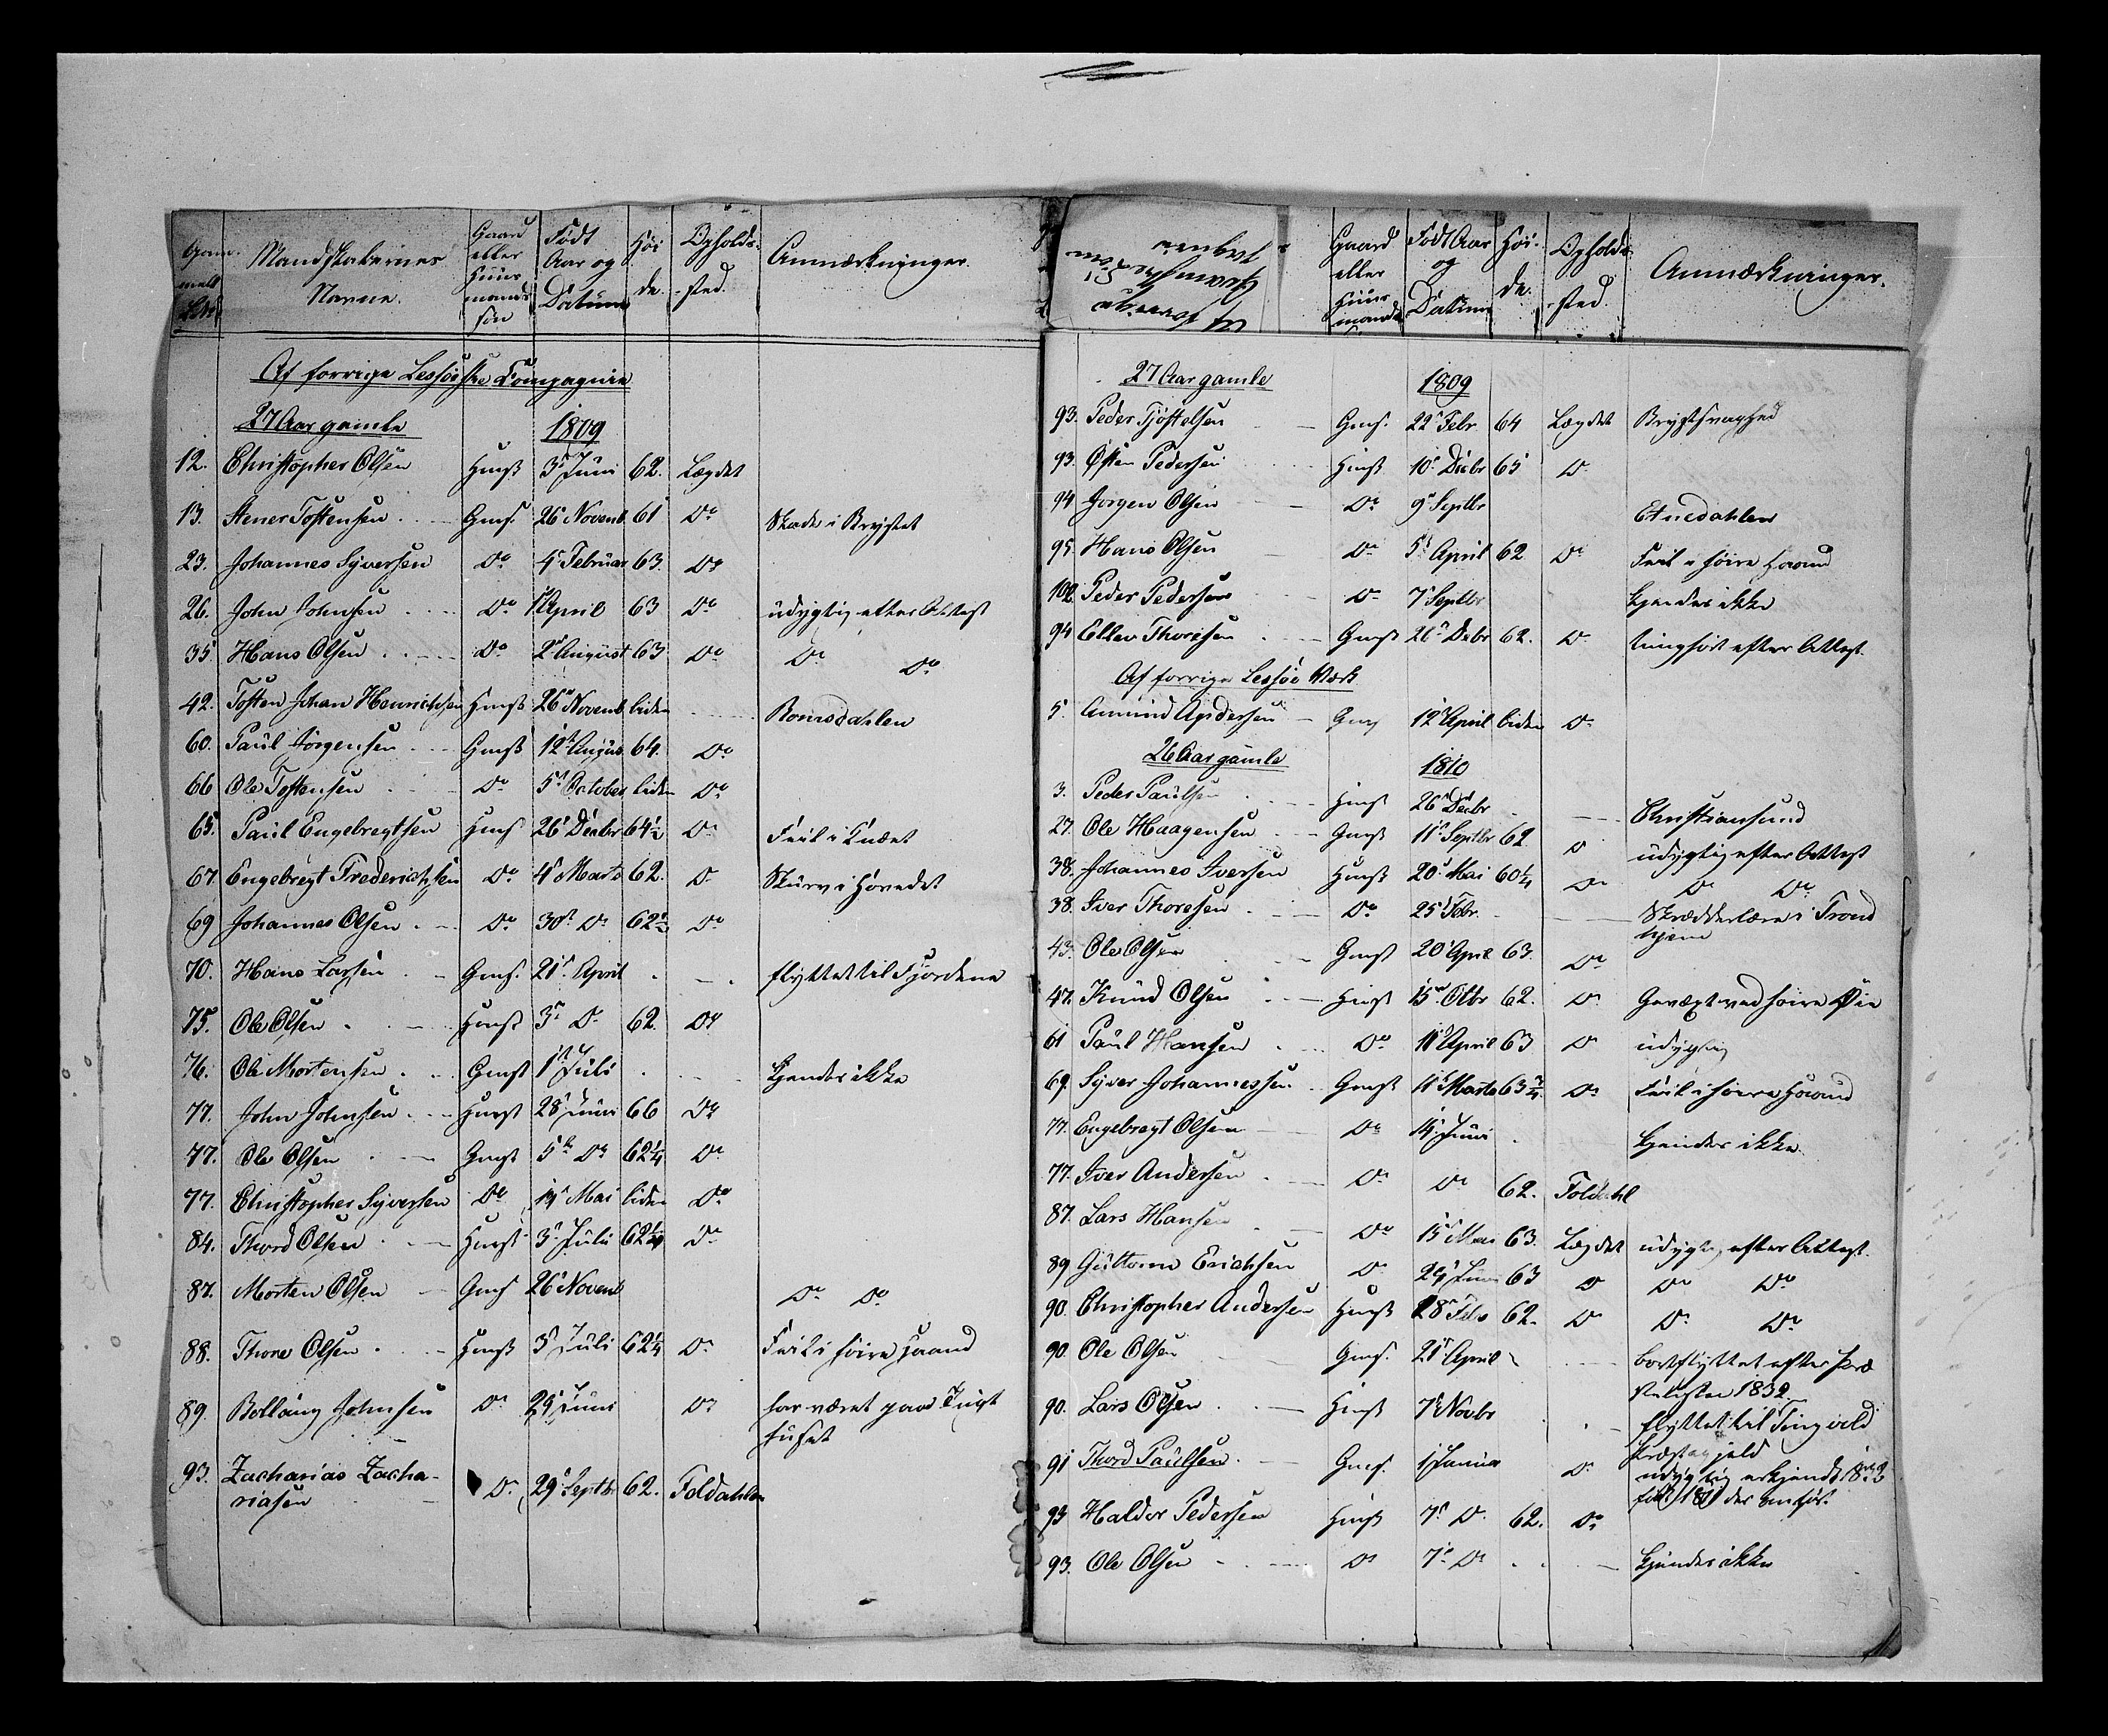 Gam-
melt
Læd
Mandskabernes
Navne.
Gaard
eller
Huus
mands
søn
Født
Aar og
Datum
Høi
de.
Opholds-
sted.
Anmærkninger.
Af forrige Lessøiske Compagnie
27 Aar gamle 1809
12. Christopher Olsen Hmss 3d Juni 62. Lægdet
13. Stener Tostensen Gms. 26 Novemb 61 Do Skade i Brystet
23. Johannes Syversen Do 4 Februar 63. Do
26. John Johnsen Do April 63 Do udygtig efter Attest
35. Hans Olsen Do 2d August 63 Do Do Do
42. Tosten Johan Henrichsen Hmss 26 Novemb liden Romsdahlen
60. Paul Jørgensen Gmss 12 August 64. Do
66 Ole Tostensen Do 5 October liden Do
65. Paul Engebregtsen Hms 26 Decbr 64½ Do Feil i Knæet
67 Engebregt Frederichsen Do 4 Marts 62. Do Skurv i Hovedet
69 Johannes Olsen Do 30 Do 62½ Do
70. Hans Larsen Gms. 21 April flyttet til Fjordene
75. Ole Olsen Hmss 3 Do 62. Do
76. Ole Mortensen Gmss 1 Juli kjendes ikke
77. John Johnsen Hmss 28 Juni 66 Do
77. Ole Olsen Gmss 5 Do 62¼ Do
77. Christopher Syversen Do 14 Mai liden Do
84. Thord Olsen Hmss 3 Juli 62¼ Do
87. Morten Olsen Gms 26 Novemb Do Do
88. Thore Olsen Hmss 3 Juli 62¼ Do Feil i høire Haand
89. Johnsen Do 29 Juni Do har været paa Tugt
huset
93. Zacharias Zacha-
riasen Do 29 Septbr 62. Foldahlen
Gaard
eller
Huus
mands
Født Aar
og
Datum
Høi-
de.
Opholds-
sted.
Anmærkninger.
27 Aar gamle 1809
93. Peder Tjostelsen Gms. 22 Febr. 64 Lægdet Brystsvaghed
93. Østen Pedersen Hmss 10 Decbr 65 Do
94 Jørgen Olsen Do 9 Septbr Etnedahlen
95. Hans Olsen Do 5 April 62 Do Feil i høire Haand
100. Peder Pedersen Do 7 Septbr kjendes ikke
94 Ellev Thoresen Gmss 26 Decbr 62. Do tunghør efter Attest.
Af forrige Lessøe Værk
5. Amund Andersen Gms 12 April liden Do
26 Aar gamle 1810
3. Peder Paulsen Hmss 26 Decbr Christiansund
27. Ole Haagensen Gmss 11 Septbr 62 Do udygtig efter Attest
38. Johannes Iversen Hmss 20 Mai 60¼ Do Do Do
38. Iver Thoresen Do 25 Febr. Skrædderlære i Trond
hjem
43. Ole Olsen Gmss 20 April 63. Do
47. Knud Olsen Hmss 15 Octbr 62. Do Gevæxt ved høire Øie
61 Paul Hansen Do 11 April 63 Do udygtig
69. Syver Johannessen Gmss 11 Marts 63¾ Do Feil i høire Haand
77. Engebregt Olsen Do 14 Juni kjendes ikke.
77. Iver Andersen Do Do 62. Foldahl
87. Lars Hansen Do 15 Mai 63. Lægdet udygtig efter Attest.
89 Guttorm Erichsen Do 24 Juni 63 Do Do Do
90. Christopher Andersen Hmss 28 Febr 62. Do Do Do
90. Ole Olsen Gms. 21 April bortflyttet efter Præ
stelisten 1832
90. Lars Olsen Hmss 7 Novbr flyttet til Tingvold
Præstegjeld
91 Thord Paulsen Gms. 1 Januar Do udygtig erkjendt 1832
93 Haldor Pedersen Hmss 7 Do 62. Do
93. Ole Olsen Do 7 Do kjendes ikke